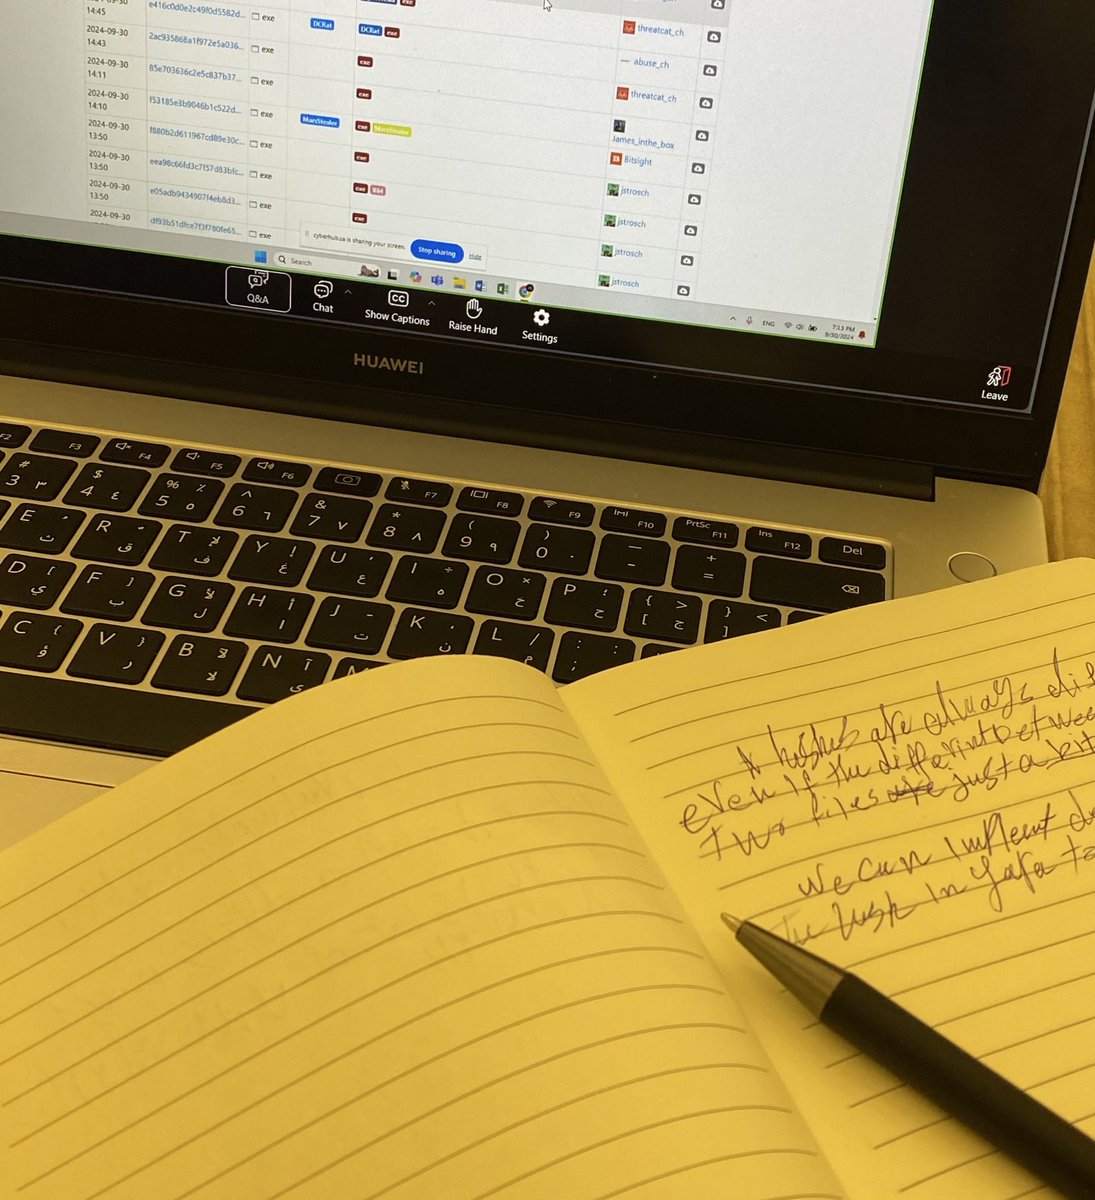 14:45 e416c0d0e2c49f0d5582d... exe DCRat DCRat exe threatcat_ch
2024-09-30
14:43 2ac935868a1f972e5a036... exe exe abuse_ch
2024-09-30
14:11 85e703636c2e5c837b37... exe exe threatcat_ch
2024-09-30
14:10 f53185e3b9046b1c522d... exe MarsStealer exe MarsStealer James_inthe_box
2024-09-30
13:50 f880b2d611967cd89e30c... exe exe Bitsight
2024-09-30
13:50 eea98c66fd3c7f57d83bfc... exe exe X64 jstrosch
2024-09-30
13:50 e05adb9434907f4eb8d3... exe exe jstrosch
2024-09-30 df93b51dfce7f3f780fe65... exe jstrosch
jstrosch
cyberhub.sa is sharing your screen. Stop sharing Hide
Search
ENG 7:13 PM
9/30/2024
Q&A Chat CC Show Captions Raise Hand Settings
Leave
HUAWEI
F2 F3 F4 F5 F6 F7 F8 F9 F10 PrtSc F11 Ins F12 Del
# 3 ٣ $ 4 ٤ % 5 ٥ ^ 6 ٦ & 7 ٧ * 8 ٨ ( 9 ٩ ) 0 ٠ — - + =
E ث R ق T ف Y غ U ع I ه O خ P ح { [ ج } ]
D ي F ب G ل H ا J ت K ن L م : ;
C ؤ V ر B لا N ى
hashes are always
even if the different between
two files are just a bit
We can
The hash in